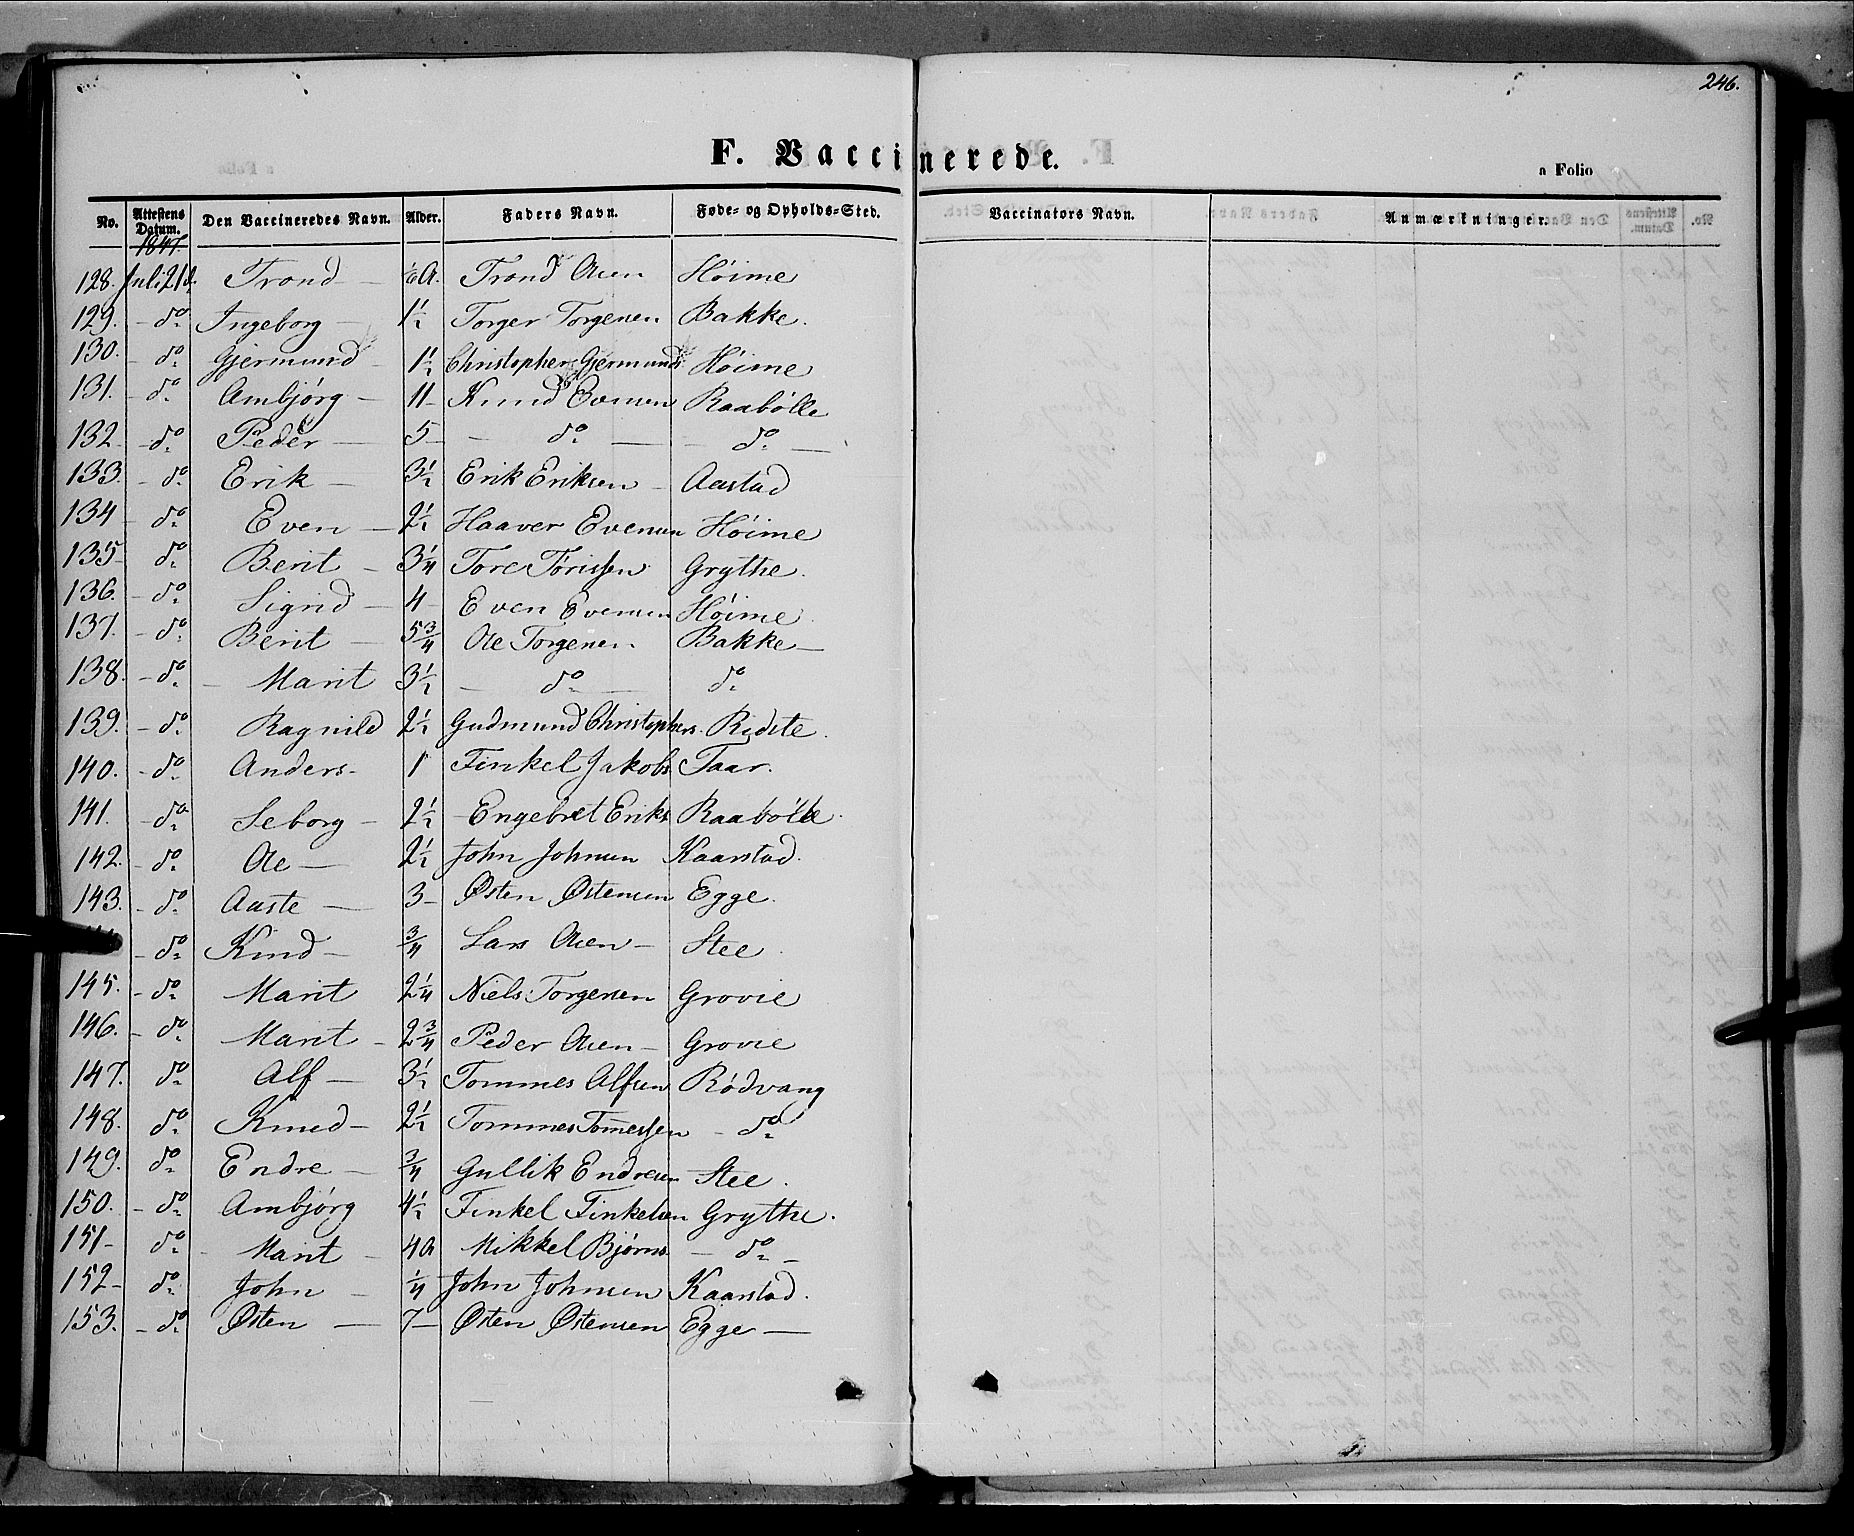 246.
F. Vaccinerede.
a Folio
No. Attestens Datum. Den Vaccineredes Navn. Alder. Faders Navn. Føde- og Opholds-Sted. Vaccinators Navn. Anmærkninger.
1847
128. Juli 21d Trond A. Trond Olsen Høime
129. - do Ingeborg 1½ Torger Torgersen Bakke.
130. - do Gjermund 1½ Christopher Gjermunds Høime
131. - do Ambjørg - 11 - Knud Evensen Raabølle
132 - do Peder 5 - do - do
133. - do Erik - 3½ Erik Eriksen - Aastad
134 - do Even - 2½ Haaver Evensen Høime
135 - do Berit - 3¼ Tore Törissen Grythe.
136. - do Sigrid - 4 - Even Evensen Høime
137. - do Berit - 5¾ Ole Torgersen Bakke -
138. - do - Marit 3½ - do - do
139. - do Ragnild 2½ Gudmund Christophers. Ridste.
140. - do Anders - 1 Finkel Jakobs Taar.
141. - do Seborg - 2½ Engebret Eriks Raabølle.
142. - do Ole - 2½ John Johnsen Kaarstad.
143. - do Aaste - 3 - Østen Østensen Egge.
- do Knud - ¾ Lars Olsen - Stee
145. - do Marit 2¼ Niels Torgersen Grovie
146. - do Marit - 2¾ Peder Olsen - Grovie
147. do Alf - 3½ Tommes Alfsen Rødvang
148. do Knud - 2½ Tommes Tom̄essen - do
149. do Endre - ¾ Gullik Endresen Stee.
150. - do Ambjørg 4½ Finkel Finkelsen Grythe.
151 - do - Marit - 4 a Mikkel Bjørns. - do -
152 - do John - ¼ John Johnsen Kaarstad.
153. - do Østen - 7 - Østen Østensen Egge -